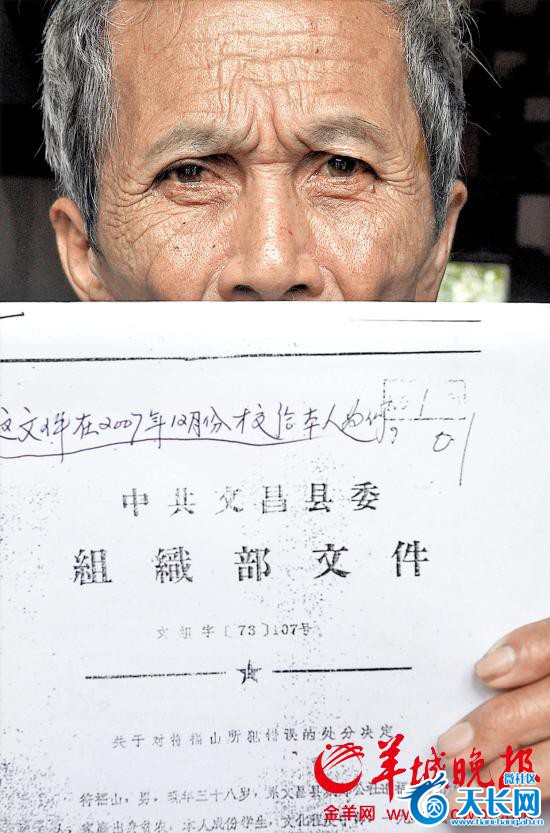 这文件在2007年12月份才交给本人
中共文昌县委
組織部文件
文组字〔73〕107号
关于对符福山所犯错误的处分决定
符福山，男，现年三十八岁，系文昌县
出身贫农，本人成份学生，文化程度
羊城晚报
金羊网 www.
微社区
天长网
www.tianchang.ah.cn